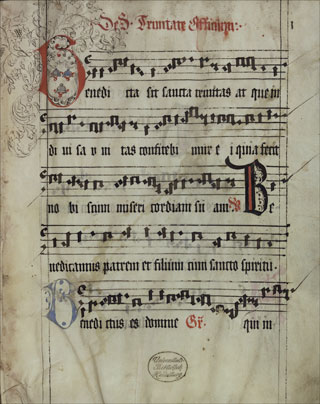 De S. Trinitate Officium:
1
Benedi cta sit sancta trinitas at que in
di ui sa v ni tas confitebi mur e i quia fecit
no bi scum miseri cordiam su am Ps Be
nedicamus patrem et filium cum sancto spiritu.
Benedi ctus es domine Gr. qui in